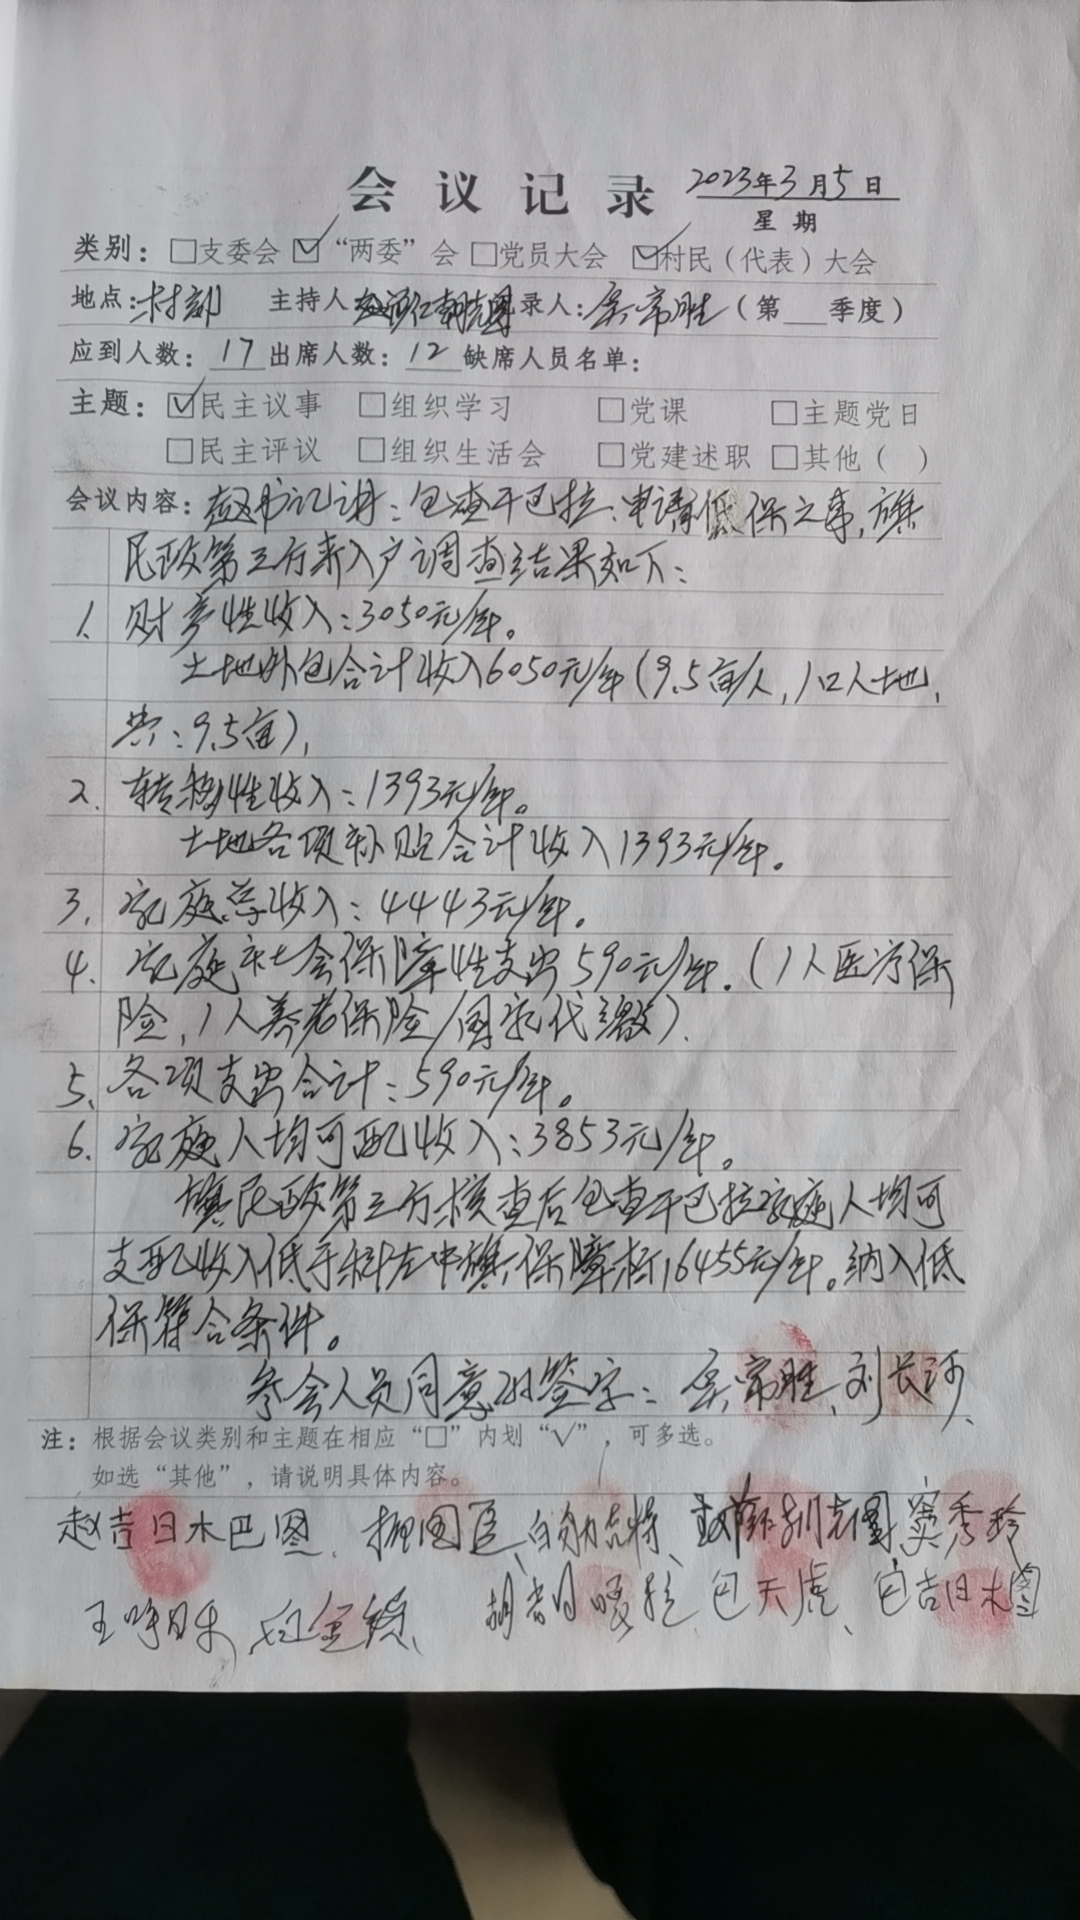 会议记录 2023年3月5日
星期
类别：□支委会 ☑“两委”会 □党员大会 ☑村民（代表）大会
地点：村部 主持人 录人：吴常胜（第__季度）
应到人数：17 出席人数：12 缺席人员名单：
主题：☑民主议事 □组织学习 □党课 □主题党日
□民主评议 □组织生活会 □党建述职 □其他（ ）
会议内容：赵书记讲：包查干巴拉、申请低保之事，旗
民政第三方来入户调查结果如下：
1、财产性收入：3050元/年。
土地外包合计收入6050元/年（9.5亩/人，1口人地，
共：9.5亩），
2、转移性收入：1393元/年。
土地各项补贴合计收入1393元/年。
3、家庭总收入：4443元/年。
4、家庭社会保障性支出590元/年。（1人医疗保
险，1人养老保险/国家代缴）.
5、各项支出合计：590元/年。
6、家庭人均可配收入：3853元/年。
旗民政第三方核查后包查干巴拉家庭人均可
支配收入低于科左中旗保障标16455元/年。纳入低
保符合条件。
参会人员同意 签字：吴常胜、刘长河、
注：根据会议类别和主题在相应“□”内划“√”，可多选。
如选“其他”，请说明具体内容。
赵吉日木巴图、 白 特、 窦秀玲
王 包金 、 胡 包天虎、包吉日木图